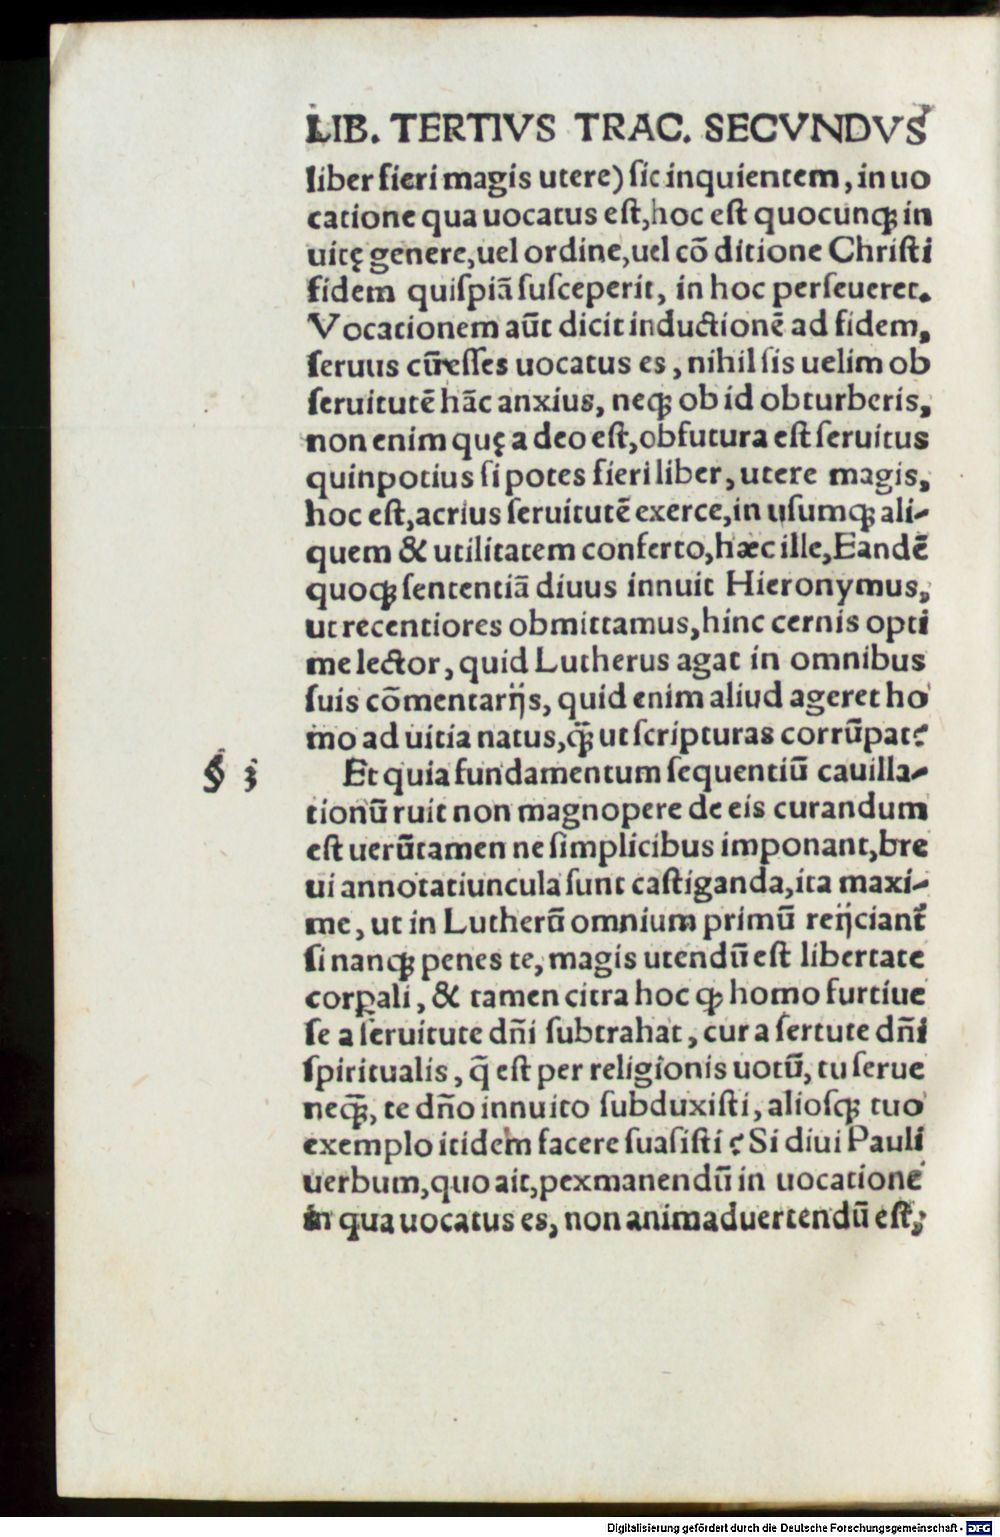 LIB. TERTIVS TRAC. SECVNDVS
liber fieri magis utere) ſic inquientem, in uo
catione qua uocatus eſt, hoc eſt quocunqꝫ in
uitę genere, uel ordine, uel cō ditione Chriſti
fidem quiſpiā ſuſceperit, in hoc perſeueret.
Vocationem aūt dicit inductionē ad fidem,
ſeruus cū eſſes uocatus es, nihil ſis uelim ob
ſeruitutē hāc anxius, neqꝫ ob id obturberis,
non enim quę a deo eſt, obfutura eſt ſeruitus
quinpotius ſi potes fieri liber, utere magis,
hoc eſt, acrius ſeruitutē exerce, in uſumqꝫ ali-
quem & utilitatem conferto, hæc ille, Eandē
quoqꝫ ſententiā diuus innuit Hieronymus,
ut recentiores obmittamus, hinc cernis opti
me lector, quid Lutherus agat in omnibus
ſuis cōmentarijs, quid enim aliud ageret ho
mo ad uitia natus, qꝫ̄ ut ſcripturas corrūpat?
§ 3 Et quia fundamentum ſequentiū cauilla-
tionū ruit non magnopere de eis curandum
eſt uerūtamen ne ſimplicibus imponant, bre
ui annotatiuncula ſunt caſtiganda, ita maxi-
me, ut in Lutherū omnium primū reijciant̄
ſi nanqꝫ penes te, magis utendū eſt libertate
corꝑali, & tamen citra hoc qꝫ homo furtiue
ſe a ſeruitute dn̄i ſubtrahat, cur a ſertute dn̄i
ſpiritualis, q̄ eſt per religionis uotū, tu ſerue
neqꝫ̄, te dn̄o innuito ſubduxiſti, alioſqꝫ tuo
exemplo itidem facere ſuaſiſti? Si diui Pauli
uerbum, quo ait, pexmanendū in uocatione
in qua uocatus es, non animaduertendū eſt,
Digitalisierung gefördert durch die Deutsche Forschungsgemeinschaft - DFG